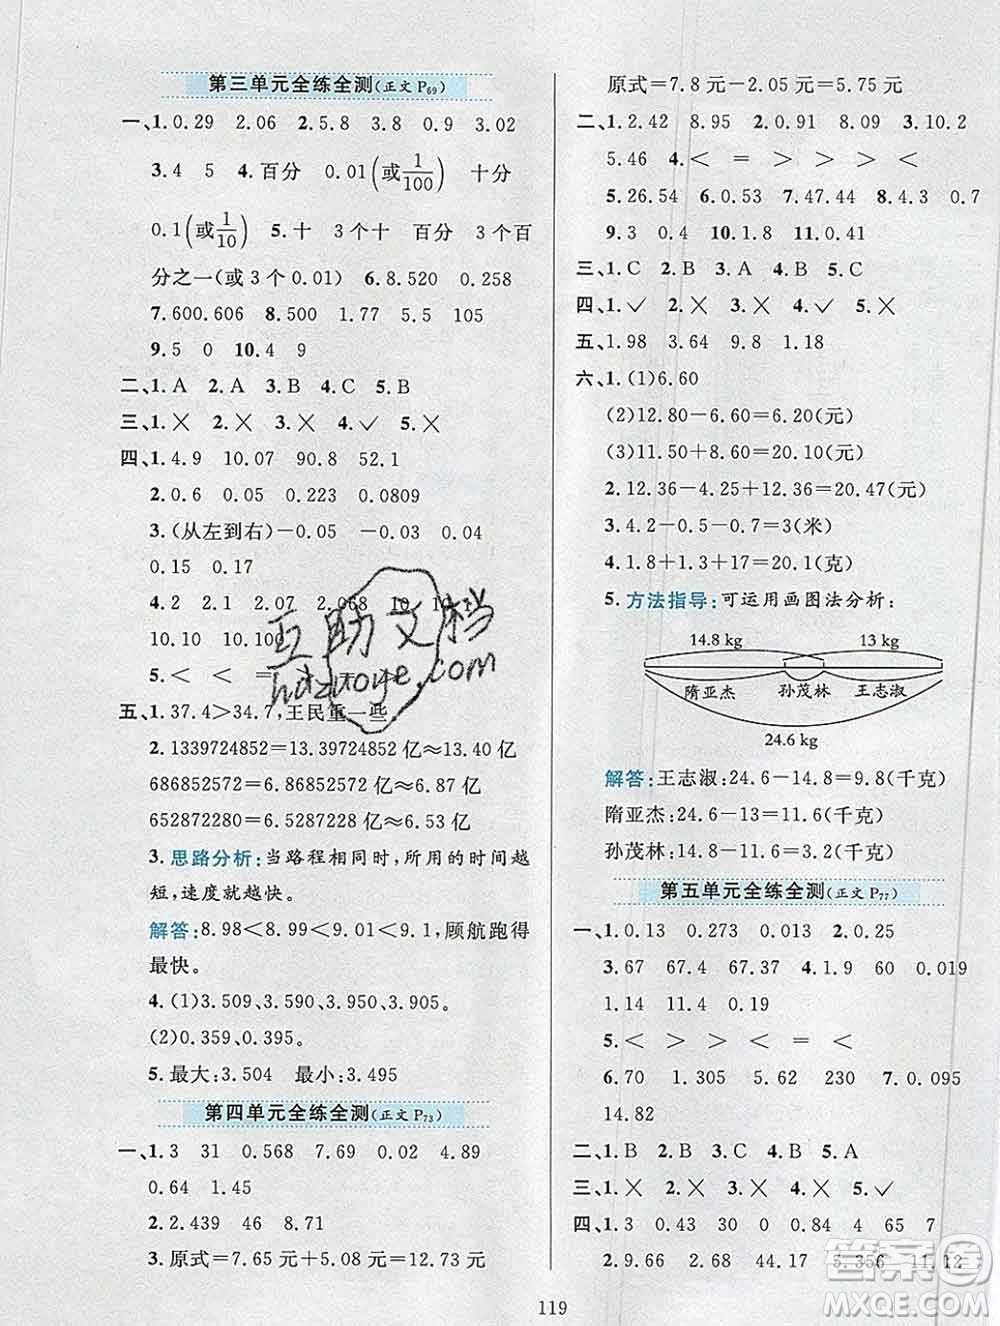 第三单元全练全测(正文 P69)
一、1.0.29 2.06 2.5.8 3.8 0.9 3.02
3.4 5 4.百分 0.01(或1/100) 十分
0.1(或1/10) 5.十 3个十 百分 3个百
分之一(或 3 个 0.01) 6.8.520 0.258
7.600.606 8.500 1.77 5.5 105
9.5 0 10.4 9
二、1.A 2.A 3.B 4.C 5.B
三、1.╳ 2.╳ 3.╳ 4.✓ 5.╳
四、1.4.9 10.07 90.8 52.1
2.0.6 0.05 0.223 0.0809
3.(从左到右)-0.05 -0.03 0.04
0.15 0.17
4.2 2.1 2.07 2.068 10 10.1
10.10 10.100
5.< < =
五、1.37.4>34.7,王民重一些
2.1339724852=13.39724852亿≈13.40 亿
686852572=6.86852572亿≈6.87亿
652872810=6.52872810亿≈6.53 亿
3.思路分析:当路程相同时,所用的时间越
短,速度就越快。
解答:8.98<8.99<9<9.1,顾航跑得
最快。
4.(1)3.509、3.590、3.950、3.905。
(2)0.359、0.395。
5.最大:3.504 最小:3.495
第四单元全练全测(正文 P73)
一、1.3 31 0.568 7.86 0.02 4.89
0.64 1.45
2.2.439 46 8.71
3.原式=7.65 元+5.08 元=12.73 元
原式=7.8 元-2.05 元=5.75 元
二、1.2.42 8.95 2.0.51 8.09 3.10.2
5.46 4.< = > > <
5.26.54 6.0.53 7.47.44 8.4.3 0.7
9.3 0.4 10.1.8 11.0.41
三、1.C 2.B 3.A 4.B 5.C
四、1.✓ 2.╳ 3.╳ 4.✓ 5.╳
五、1.98 3.64 9.08 14.32
六、1.(1)6.60
(2)12.80-6.60=6.20(元)
(3)11.50+8.60=20.10(元)
2.12.36-4.25+12.36=20.47(元)
3.4.2-0.5-0.7=3(米)
4.1.8+1.3+17=20.1(克)
5.方法指导:可运用画图法分析:
14.8 kg 13 kg
隋亚杰 孙茂林 王志淑
24.6 kg
解答:王志淑:24.6-14.8=9.8(千克)
隋亚杰:24.6-13=11.6(千克)
孙茂林:14.8-11.6=3.2(千克)
第五单元全练全测(正文 P77)
一、1.0.13 0.273 0.013 2.0.25
3.67 67.4 67.36 4.1.9 60 0.019
1.14 11.4 0.19
5.< > > < = <
6.70 1.305 2.058 220 7.0.095
14.82
二、1.B 2.B 3.B 4.C 5.A
三、1.╳ 2.╳ 3.╳ 4.╳ 5.✓
四、1.3 0.43 30 0 0.84 65 7
2.9.66 2.68 44.17 5.356 11.12
119
互助文档
hdzuoye.com
答案圈
MXQE.COM